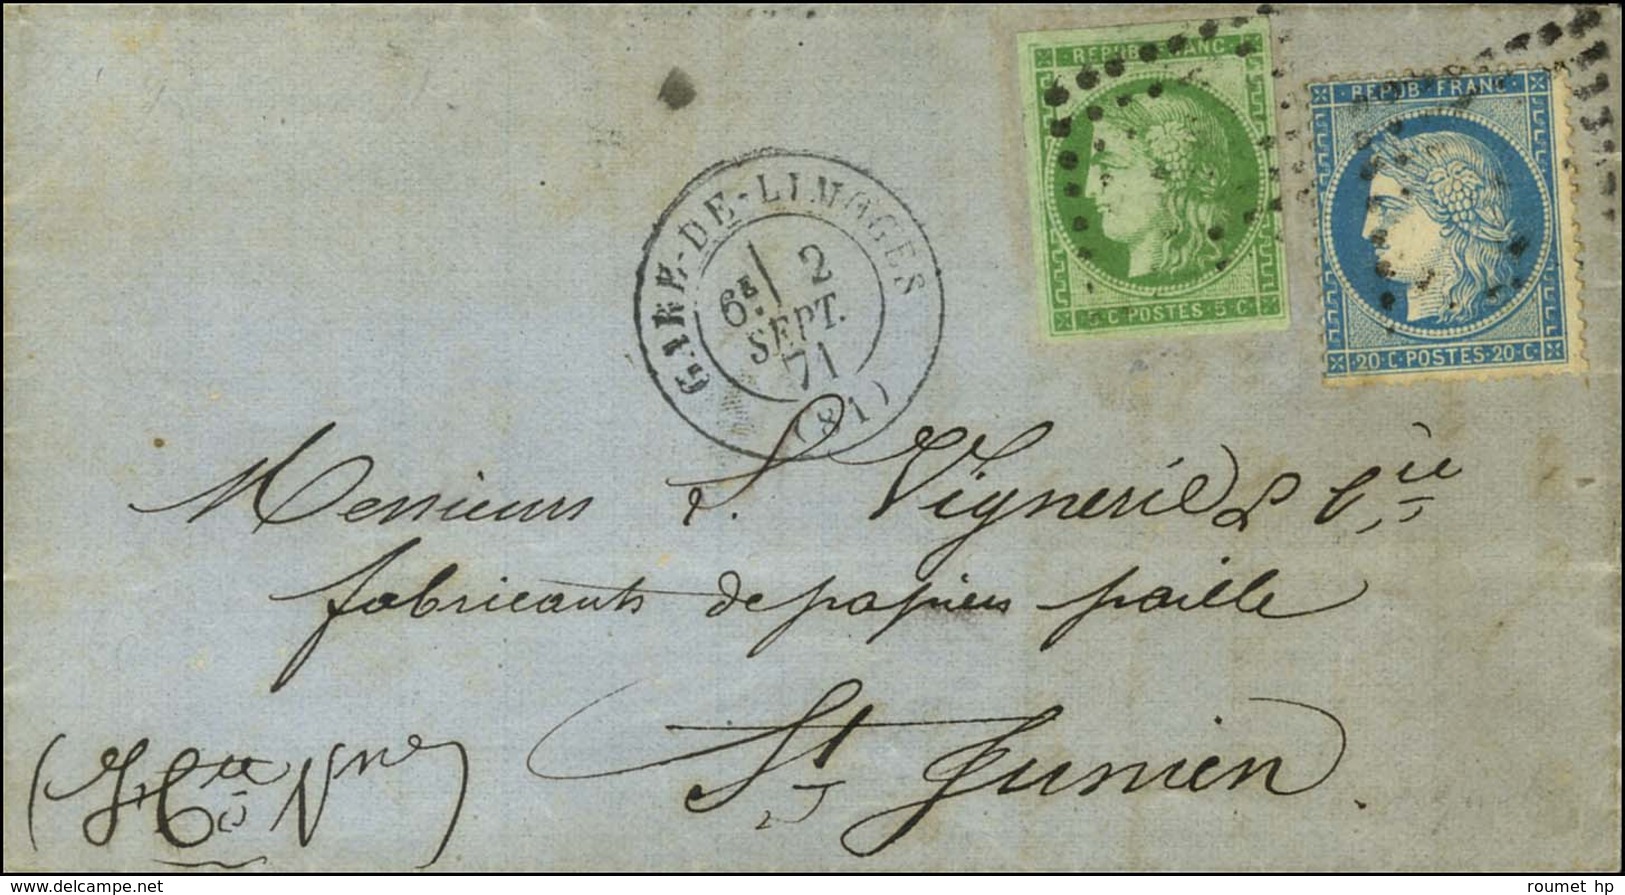 REPUB. FRANC.
5 C. POSTES. 5 C.
REPUB. FRANC.
20 C. POSTES. 20 C.
GARE-DE-LIMOGES
6E 2
SEPT.
71
(81)
Messieurs S. Vignerie & Cie
fabricants de papiers paille
St Junien
(Hte Vne)
www.delcampe.net
roumet hp